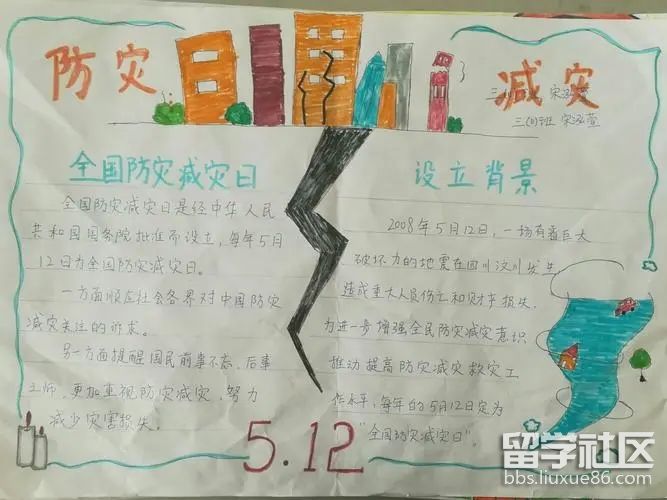 防灾
减灾
三(1)班 宋泓萱
全国防灾减灾日
全国防灾减灾日是经中华人民
共和国国务院批准而设立,每年5月
12日为全国防灾减灾日。
一方面顺应社会各界对中国防灾
减灾关注的诉求。
另一方面提醒国民前事不忘、后事
之师,更加重视防灾减灾,努力
减少灾害损失。
设立背景
2008年5月12日,一场有着巨大
破坏力的地震在四川汶川发生
造成重大人员伤亡和财产损失.
为进一步增强全民防灾减灾意识
推动提高防灾减灾救灾工
作水平,每年的5月12日定为
"全国防灾减灾日"。
5.12
留学社区
bbs.liuxue86.com